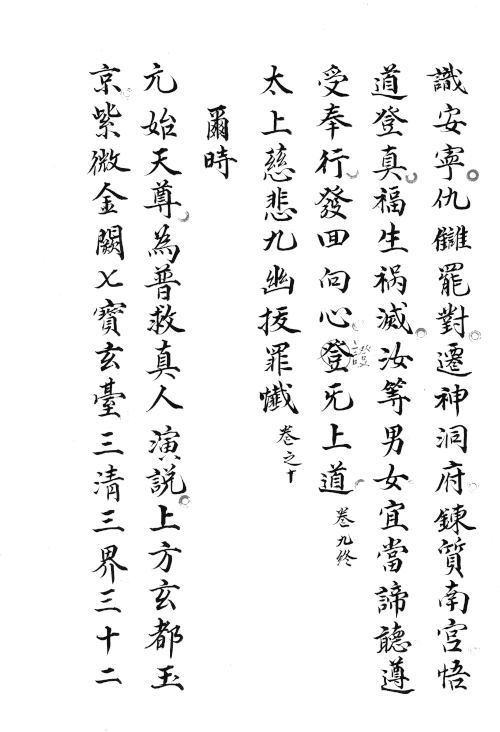 識安寧仇讎罷對遷神洞府鍊質南宫悟
道登真福生禍滅汝等男女宜當諦聽遵
受奉行發回向心登无上道卷九終
太上慈悲九幽拔罪懺卷之十
爾時
元始天尊為普救真人演説上方玄都玉
京紫微金闕七寶玄臺三清三界三十二